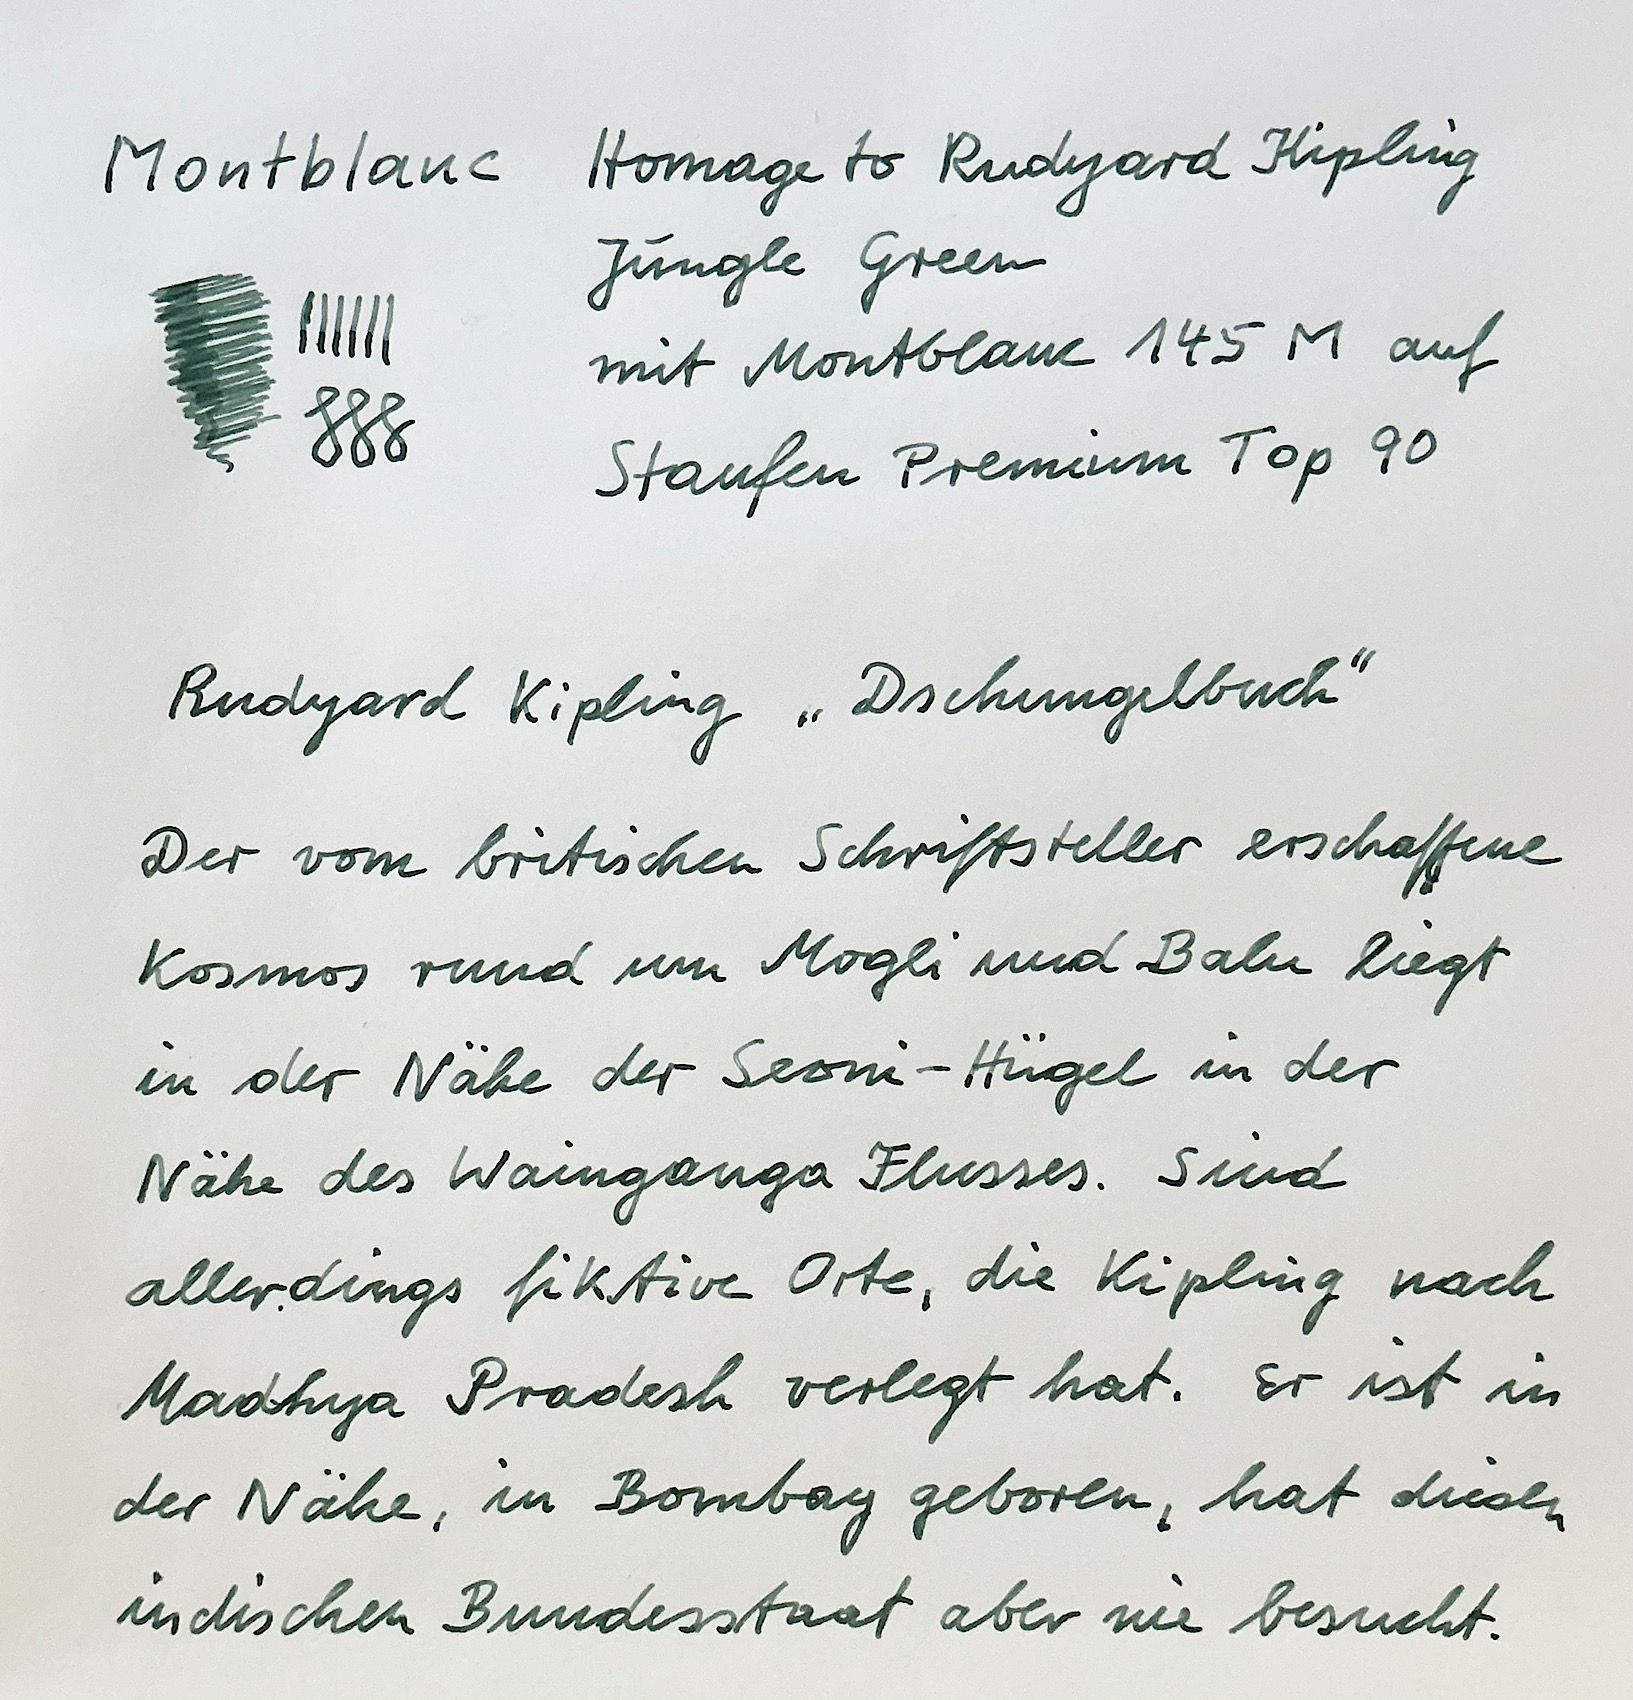 Montblanc Homage to Rudyard Kipling
Jungle Green
mit Montblanc 145 M auf
Staufen Premium Top 90
Rudyard Kipling „Dschungelbuch“
Der vom britischen Schriftsteller erschaffene
Kosmos rund um Mogli und Balu liegt
in der Nähe der Seoni-Hügel in der
Nähe des Wainganga Flusses. Sind
allerdings fiktive Orte, die Kipling nach
Madhya Pradesh verlegt hat. Er ist in
der Nähe, in Bombay geboren, hat diesen
indischen Bundesstaat aber nie besucht.